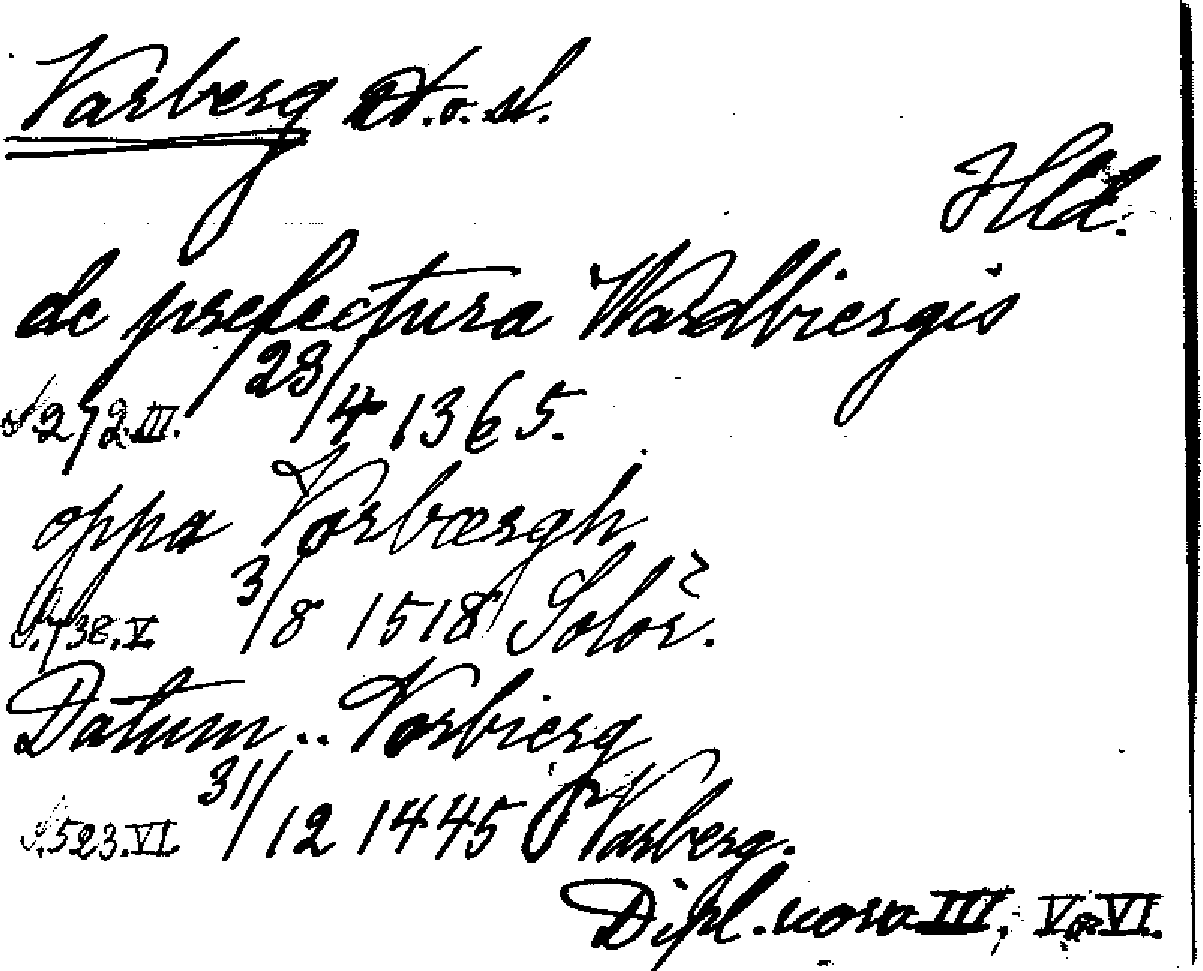 Varberg st. o. sl.
Hld.
de prefectura Wardbiergis
S 272 III. 23/4 1365.
oppa Vorbærgh
S. 738. V. 3/8 1518 Solör.
Datum .. Vorbierg
S. 523. VI. 31/12 1445 Varberg.
Dipl. norv. III, V o VI.